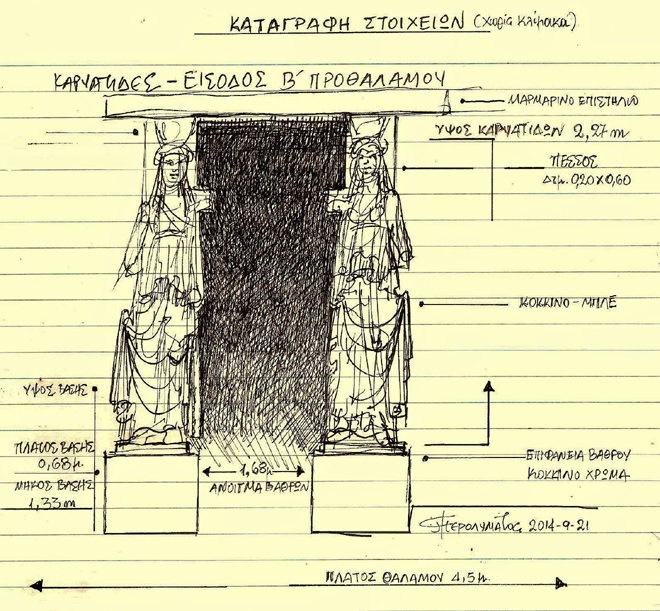 ΚΑΤΑΓΡΑΦΗ ΣΤΟΙΧΕΙΩΝ (χωρίς κλίμακα)
ΚΑΡΥΑΤΙΔΕΣ – ΕΙΣΟΔΟΣ Β΄ ΠΡΟΘΑΛΑΜΟΥ
ΜΑΡΜΑΡΙΝΟ ΕΠΙΣΤΗΛΙΟ
ΥΨΟΣ ΚΑΡΥΑΤΙΔΩΝ 2,27m
ΠΕΣΣΟΣ
Διμ. 0,20 x 0,60
ΚΟΚΚΙΝΟ – ΜΠΛΕ
ΥΨΟΣ ΒΑΣΗΣ
ΠΛΑΤΟΣ ΒΑΣΗΣ
0,68μ.
ΜΗΚΟΣ ΒΑΣΗΣ
1,33m
1,68μ
ΑΝΟΙΓΜΑ ΒΑΘΡΩΝ
ΕΠΙΦΑΝΕΙΑ ΒΑΘΡΟΥ
ΚΟΚΚΙΝΟ ΧΡΩΜΑ
2014-9-21
ΠΛΑΤΟΣ ΘΑΛΑΜΟΥ 4,5μ.